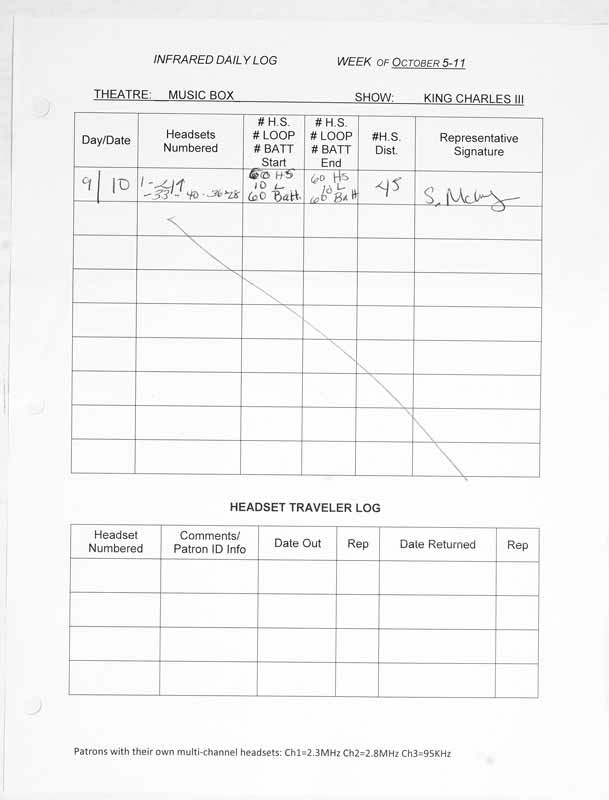 INFRARED DAILY LOG WEEK OF OCTOBER 5-11
THEATRE: MUSIC BOX SHOW: KING CHARLES III
Day/Date
Headsets
Numbered
# H.S.
# LOOP
# BATT
Start
# H.S.
# LOOP
# BATT
End
#H.S.
Dist.
Representative
Signature
9/10
60 HS
10 L
60 Batt.
60 HS
10 L
60 Batt
45
HEADSET TRAVELER LOG
Headset
Numbered
Comments/
Patron ID Info
Date Out
Rep
Date Returned
Rep
Patrons with their own multi-channel headsets: Ch1=2.3MHz Ch2=2.8MHz Ch3=95KHz